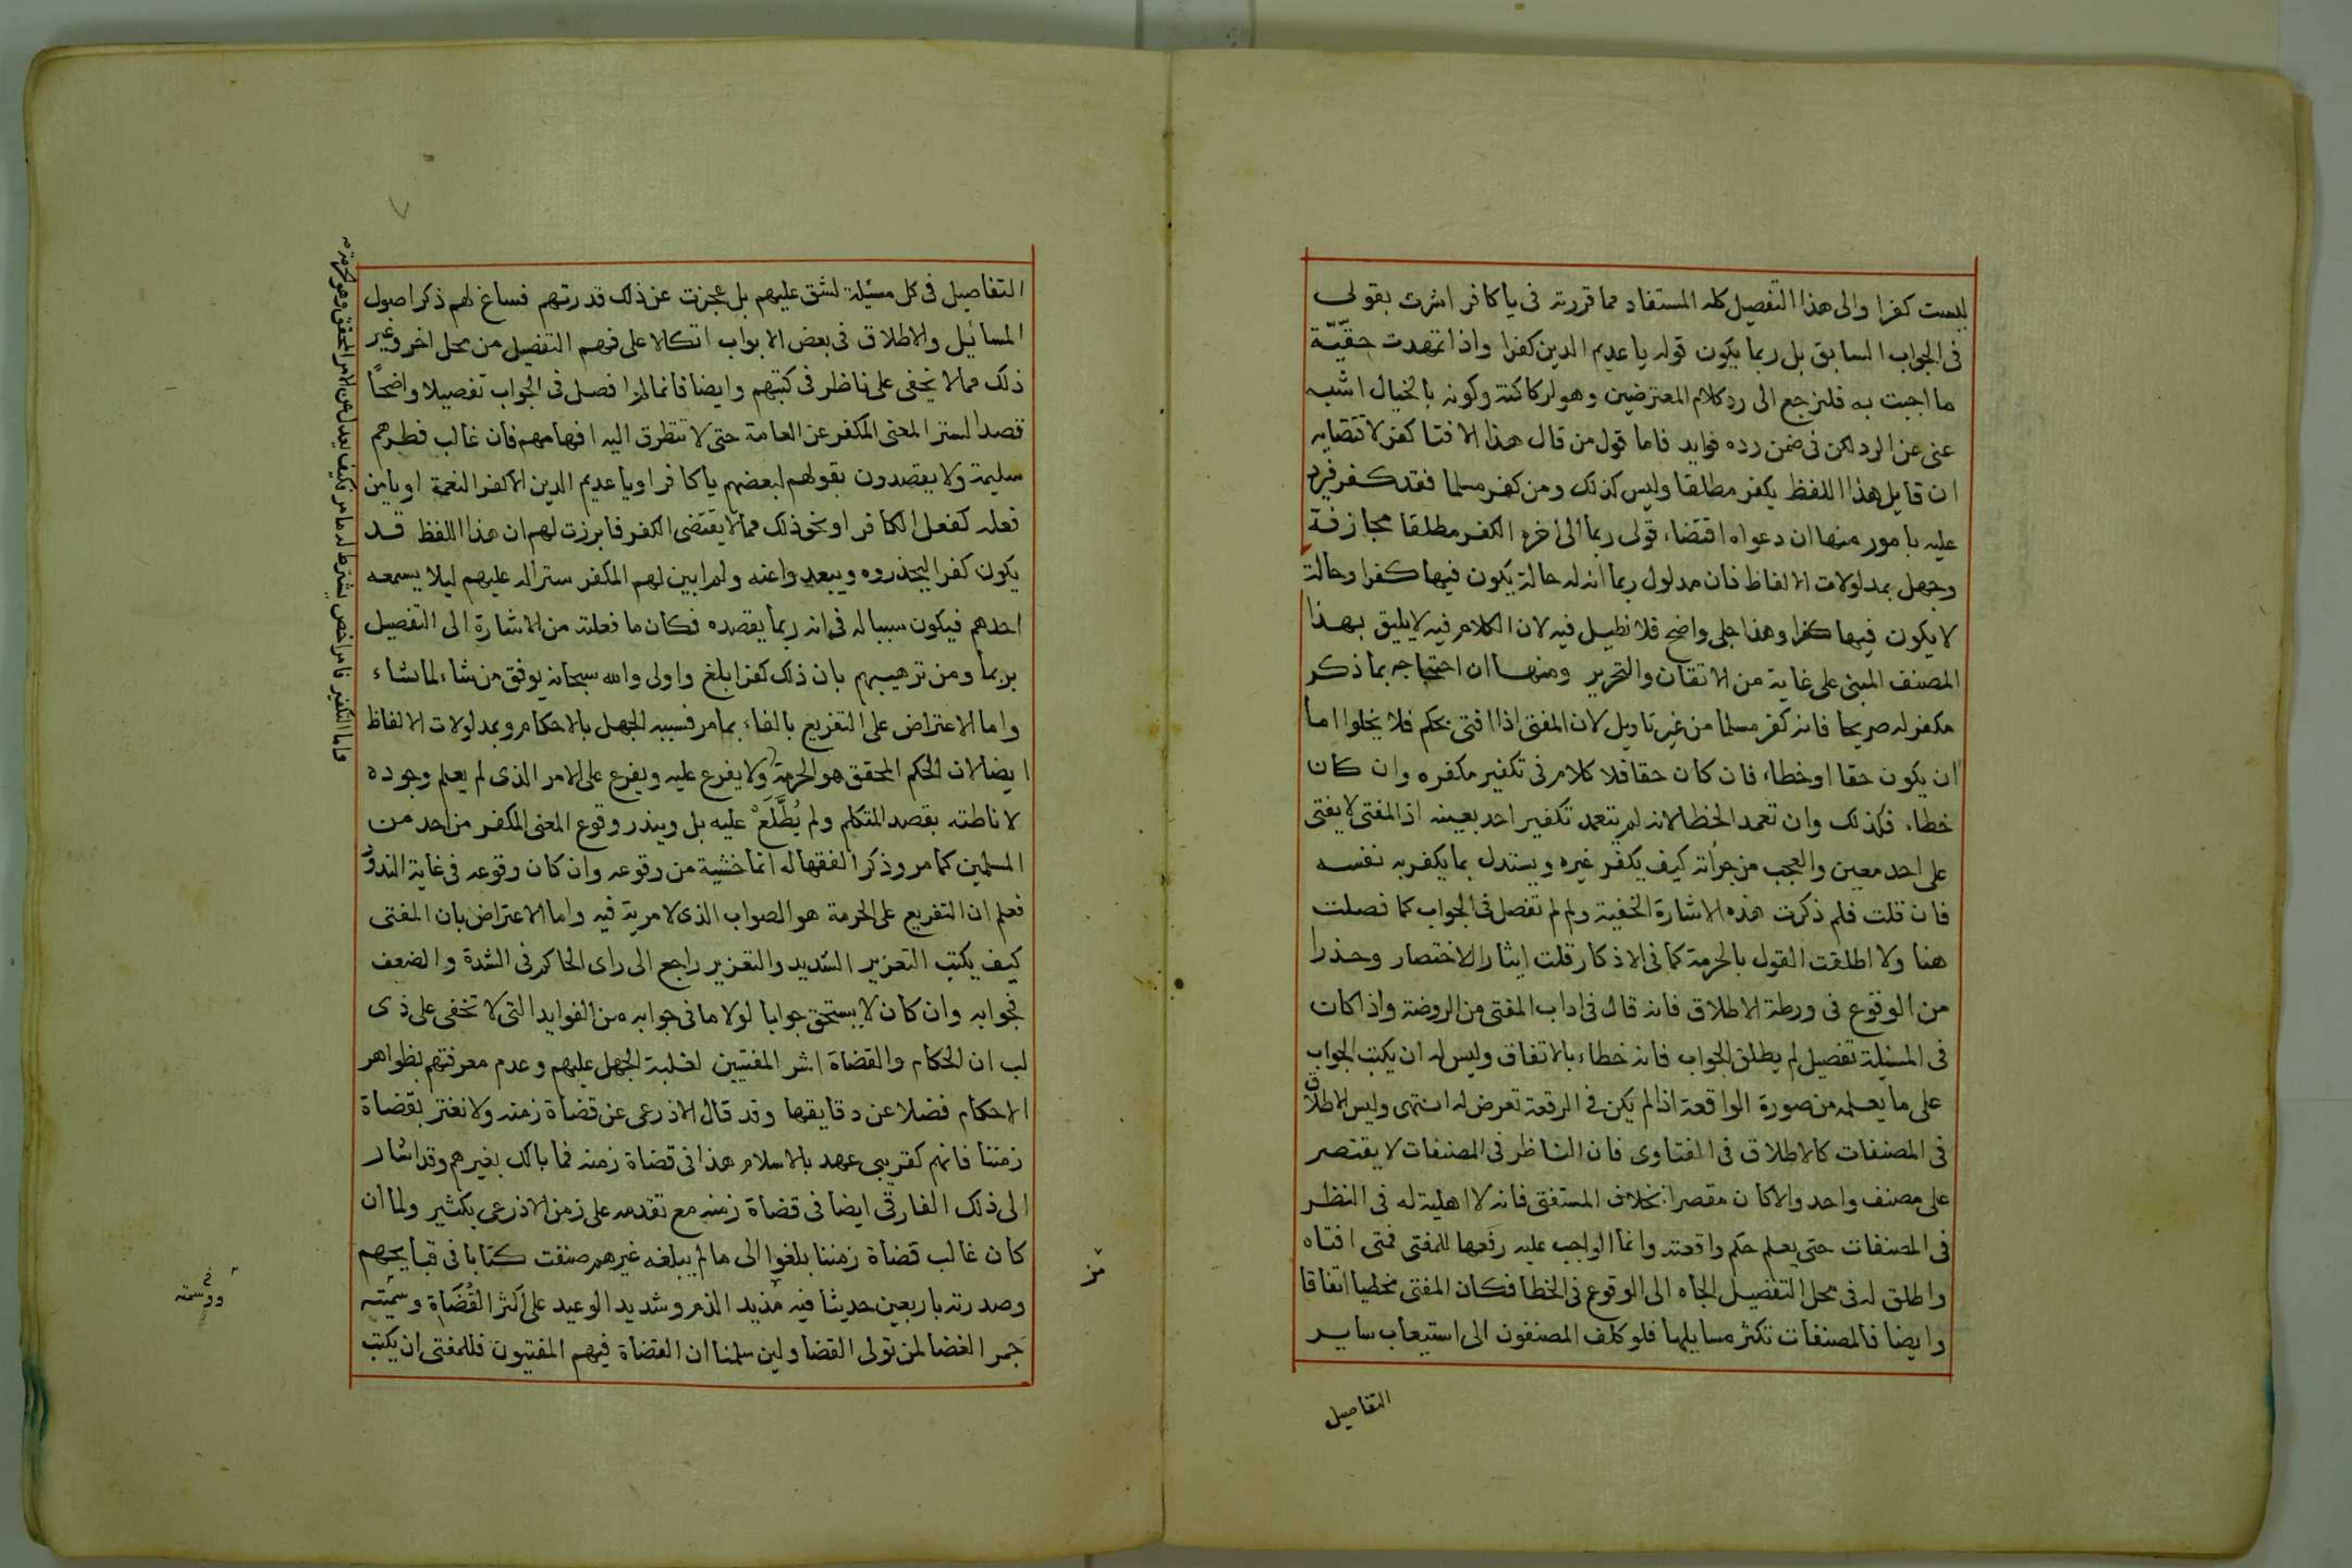 ليست كفرا والى هذا التفصيل كله المستفاد مما قررته فى ياكافر اشرت بقولى
فى الجواب السابق بل ربما يكون قوله يا عديم الدين كفرا واذا تمهدت حقّيّة
ما اجبت به فلنرجع الى رد كلام المعترضين وهو لركاكته وكونه بالخيال اشبه
غنى عن الرد لكن فى ضمن رده فوايد فاما قول من قال هذا الافتا كفر لاقتضايه
ان قايل هذا اللفظ يكفر مطلقا وليس كذلك ومن كفر مسلما فقد كفر فيرد
عليه بامور منها ان دعواه اقتضاء قولى ربما الى اخره الكفر مطلقا مجازفة
وجهل بمدلولات الالفاظ فان مدلول ربما انه له حالة يكون فيها كفرا وحالة
لا يكون فيها كفرا وهذا جلى واضح فلا نطيل فيه لان الكلام فيه لا يليق بهذا
المصنف المبنى على غاية من الاتقان والتحرير ومنها ان احتجاجه بما ذكر
مكفر له صريحا فانه كفر مسلما من غير تاويل لان المفتى اذا افتى بحكم فلا يخلوا اما
ان يكون حقا او خطاء فان كان حقا فلا كلام فى تكفير مكفره وان كان
خطاء فكذلك وان تعمد الخطا لانه لم يتعمد تكفير احد بعينه اذ المفتى لا يفتى
على احد معين والعجب من جراته كيف يكفر غيره ويستدل بما يكفر به نفسه
فان قلت فلم ذكرت هذه الاشارة الخفية ولم لم تفصل فى الجواب كما فصلت
هنا ولا اطلقت القول بالحرمة كما فى الاذكار قلت ايثار الاختصار وحذرا
من الوقوع فى ورطة الاطلاق فانه قال فى اداب المفتى من الروضة واذا كان
فى المسئلة تفصيل لم يطلق الجواب فانه خطاء بالاتفاق وليس له ان يكتب الجواب
على ما يعلمه من صورة الواقعة اذا لم يكن فى الرقعة تعرض له انتهى وليس الاطلاق
فى المصنفات كالاطلاق فى الفتاوى فان الناظر فى المصنفات لا يقتصر
على مصنف واحد والا كان مقصرا بخلاف المستفتى فانه لا اهلية له فى النظر
فى المصنفات حتى يعلم حكم واقعته وانما الواجب عليه رفعها للمفتى فمتى افتاه
واطلق له فى محل التفصيل الجاه الى الوقوع فى الخطا فكان المفتى مخطيا اتفاقا
وايضا فالمصنفات تكثر مسايلها فلو كلف المصنفون الى استيعاب ساير
التفاصيل
التفاصيل فى كل مسئلة لشق عليهم بل عجزت عن ذلك قدرتهم فساغ لهم ذكر اصول
المسائيل والاطلاق فى بعض الابواب اتكالا على فهم التفصيل من محل اخر وغير
ذلك مما لا يخفى على ناظر فى كتبهم وايضا فانما لم افصل فى الجواب تفصيلا واضحاً
قصدا لستر المعنى المكفر عن العامة حتى لا تتطرق اليه افهامهم فان غالب فطرهم
سليمة ولا يقصدون بقولهم لبعضهم ياكافر او يا عديم الدين الا كفر النعمة او يا من
فعله كفعل الكافر او نحو ذلك مما لا يقتضى الكفر فابرزت لهم ان هذا اللفظ قد
يكون كفرا ليحذروه ويبعدوا عنه ولم ابين لهم المكفر سترا له عليهم ليلا يسمعه
احدهم فيكون سببا له فى انه ربما يقصده فكان ما فعلته من الاشارة الى التفصيل
بربما ومن ترهيبهم بان ذلك كفر ابلغ واولى والله سبحانه يوفق من شاء لما شاء
واما الاعتراض على التفريع بالفاء بما مر فسببه الجهل بالاحكام وبمدلولات الالفاظ
ايضا لان الحكم المحقق هو الحرمة ولا يفرع عليه ويفرع على الامر الذى لم يعلم وجوده
لاناطته بقصد المتكلم ولم يُطَّلَعْ عليه بل ويندر وقوع المعنى المكفر من احد من
المسلمين كما مر وذكر الفقها له انما خشية من وقوعه وان كان وقوعه فى غاية الندور
فعلم ان التفريع على الحرمة هو الصواب الذى لا مرية فيه واما الاعتراض بان المفتى
كيف يكتب التعزير الشديد والتعزير راجع الى راى الحاكم فى الشدة والضعف
فجوابه وان كان لا يستحق جوابا لولا ما فى جوابه من الفوايد التى لا تخفى على ذى
لب ان الحكام والقضاة اشر المفتيين لغلبة الجهل عليهم وعدم معرفتهم بظواهر
الاحكام فضلا عن دقايقها وقد قال الاذرعى عن قضاة زمنه ولا نغتر بقضاة
زمننا فانهم كقريبى عهد بالاسلام هذا فى قضاة زمنه فما بالك بغيرهم وقد اشار
الى ذلك الفارقى ايضا فى قضاة زمنه مع تقدمه على زمن الاذرعى بكثير ولما ان
كان غالب قضاة زمننا بلغوا الى ما لم يبلغه غيرهم صنفت كتابا فى قبايحهم
وصدرته باربعين حديثا فيه مذيد الذم وشديد الوعيد على اكثر القُضَاة وسمّيته
جمر الغضا لمن تولى القضا ولين سلمنا ان القضاة فيهم المفتيون فللمفتى ان يكتب
واما التكفير فامر اخص يشترط له ما مر فكيف يعدل عن الامر المحقق وهو الحرمة